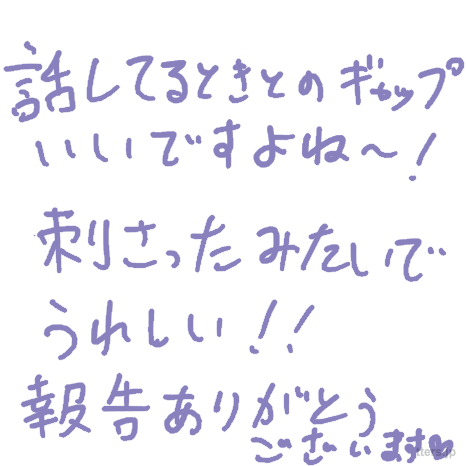 話してるときとのギャップ
いいですよね〜！
刺さったみたいで
うれしい！！
報告ありがとう
ございます♥